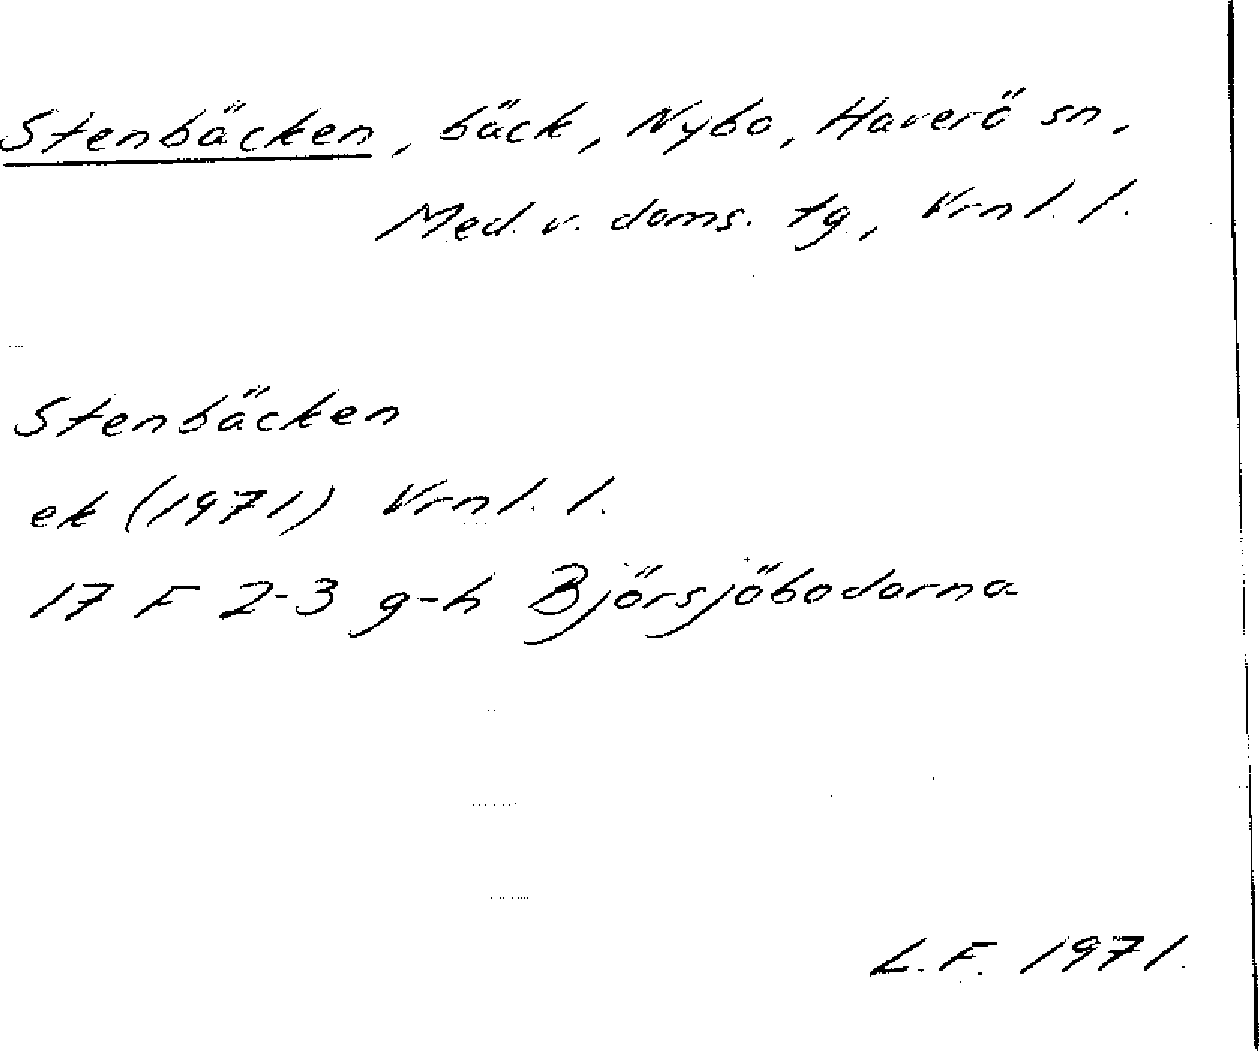 Stenbäcken, bäck, Nybo, Haverö sn,
Med. v. doms. tg, Vrnl. l.
Stenbäcken
ek (1971) Vrnl. l.
17 F 2-3 g-h Björsjöbodarna
L.F. 1971.